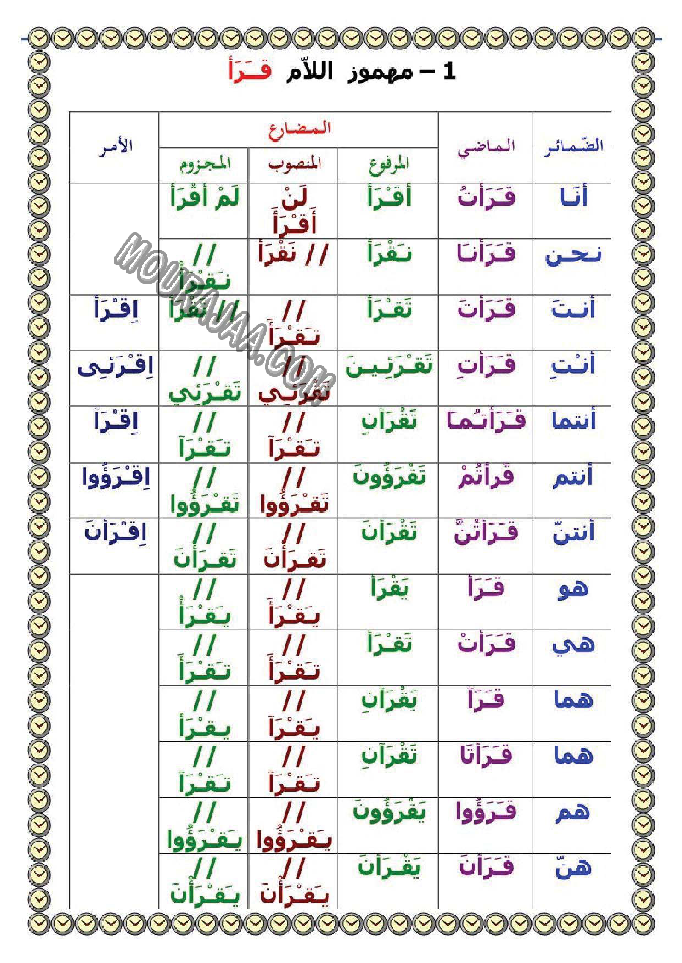 1 – مهموز اللاّم قَـرَأَ
الضّمائر الماضي المضارع الأمر
المرفوع المنصوب المجزوم
أنَـا قَـرَأتُ أقْـرَأ لَنْ أَقْـرَأَ لَمْ أقْرَأ
نـحـن قَـرَأنـا نـَقْـرَأ // نَقْرَأ // نـَقْـرَأ
أنـتَ قَـرَأتَ تَقْـرَأ // تـَقْـرَأ // تَقْرَأ إقْـرَأ
أنْـتِ قَـرَأتِ تَقْـرَئِـيـنَ // تَقْرَئـِي // تَقْرَئِي اِقْـرَئِـى
أنتما قَـرَأتـُمـَا تَقْرَآنِ // تـَقْـرَآ // تـَقْـرَآ إقْـرَآ
أنتم قَرأتُمْ تَقْرَؤُونَ // تَقْـرَؤُوا // تَقْـرَؤُوا اِقْـرَؤُوا
أنتنّ قَـرَأتُنَّ تَقْـرَأنَ // تَقرَأْنَ // تَقرَأْنَ اِقْـرَأنَ
هو قَـرَأ يَقْرَأ // يـَقْـرَأَ // يـَقْـرَأْ
هي قَـرَأتْ تَقْـرَأ // تـَقْـرَأَ // تـَقْـرَأَ
هما قَـرَآ يَقْرَآنِ // يـَقْـرَآ // يـقْـرَأ
هما قَـرَأتَا تَقْرَآنِ // تـَقْـرَآ // تـَقْـرَآ
هم قَـرَؤُوا يَقْرَؤُونَ // يـَقـْرَؤُوا // يـَقـْرَؤُوا
هنّ قَـرَأنَ يَقْـرَأنَ // يـَقْـرَأْنَ // يـَقْـرَأْنَ
MOURAJAA.COM